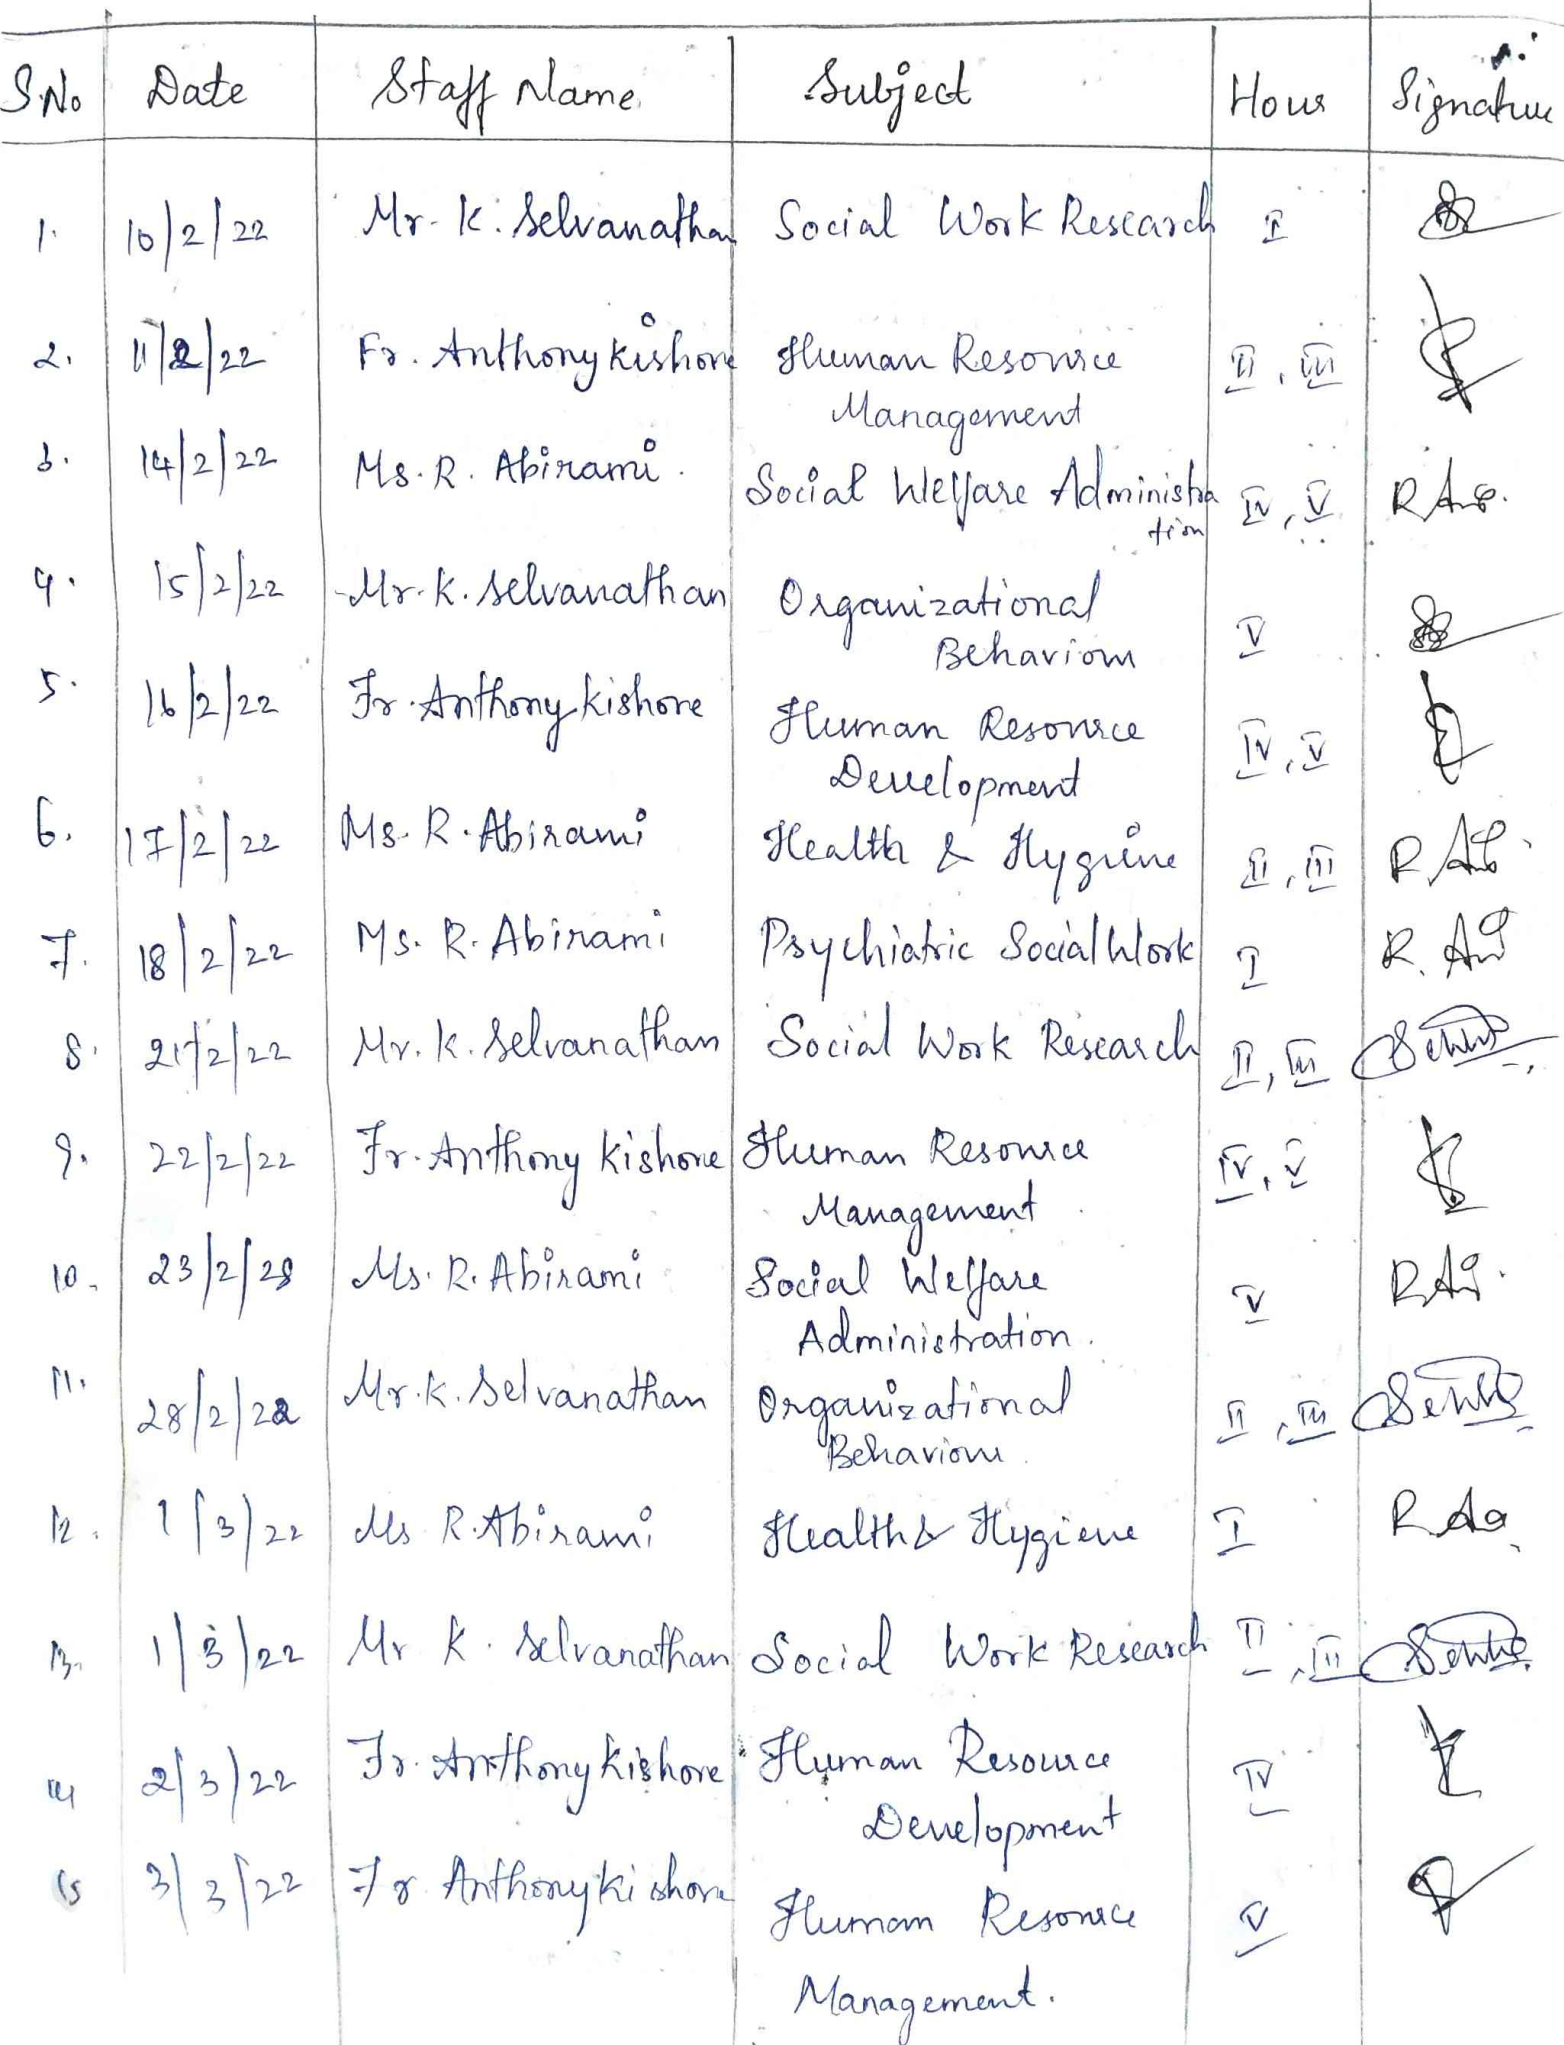 S.No Date Staff Name Subject Hour Signature
1. 10/2/22 Mr. K. Selvanathan Social Work Research I
2. 11/2/22 Fr. Anthony kishore Human Resource II, III
Management
3. 14/2/22 Ms. R. Abirami. Social Welfare Administra IV, V R
tion
4. 15/2/22 Mr. K. Selvanathan Organizational
Behaviour V
5. 16/2/22 Fr. Anthony kishore Human Resource IV, V
Development
6. 17/2/22 Ms. R. Abirami Health & Hygiene II, III R
7. 18/2/22 Ms. R. Abirami Psychiatric Social Work I R.
8. 21/2/22 Mr. K. Selvanathan Social Work Research II, III
9. 22/2/22 Fr. Anthony kishore Human Resource IV, V
Management
10. 23/2/22 Ms. R. Abirami Social Welfare V R
Administration.
11. 28/2/22 Mr. K. Selvanathan Organizational II, III
Behaviour
12. 1/3/22 Ms R. Abirami Health & Hygiene I R
13. 1/3/22 Mr K. Selvanathan Social Work Research II, III
14 2/3/22 Fr. Anthony kishore Human Resource IV
Development
15 3/3/22 Fr Anthony kishore Human Resource V
Management.